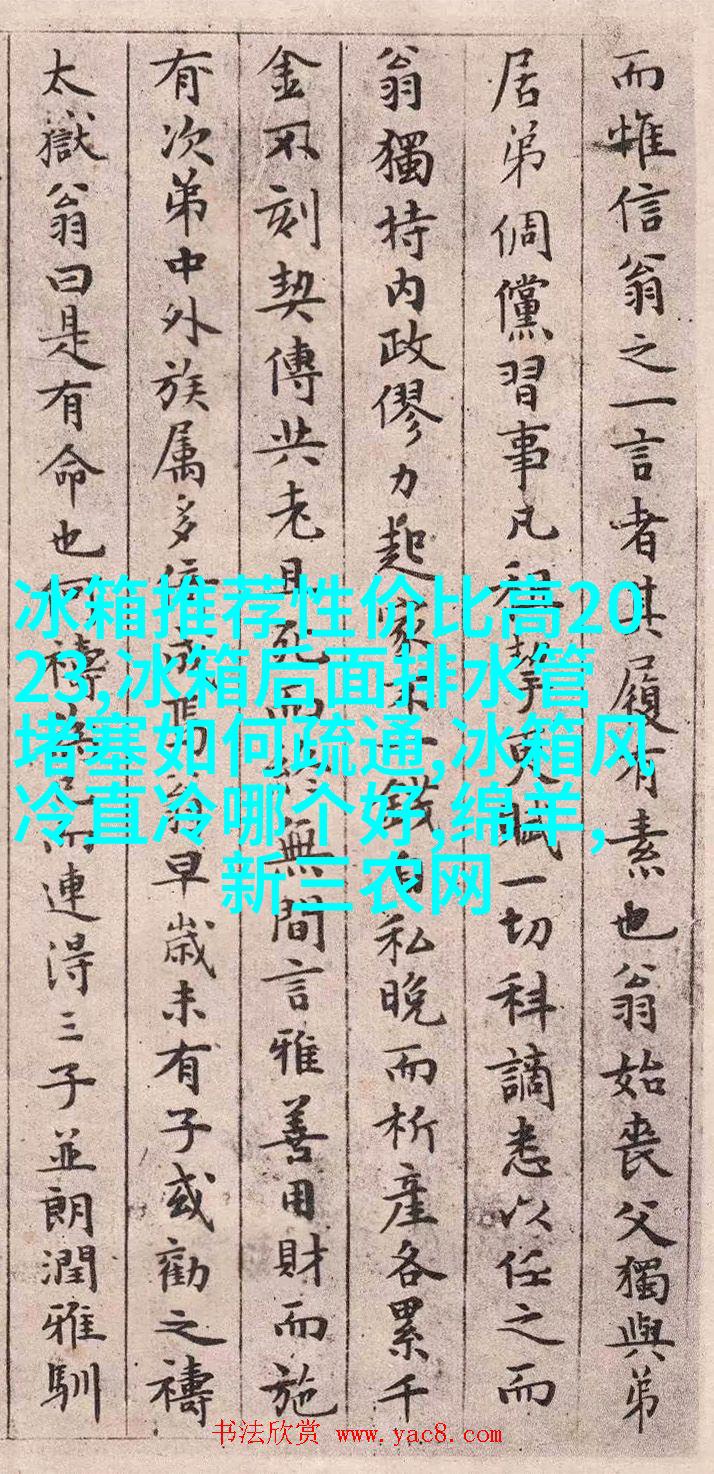 而惟信翁之一言者其履有素也翁始喪父獨與弟
居弟倜儻習事凡租挈更賦一切科謫悉以任之而
翁獨持内政僇力起家不一錢自私晚而析產各累千
金不刻契傳共老且死而終無間言雅善用財而施
有次第中外族属多倚成焉翁早歲未有子或勸之禱
太獄翁曰是有命也何禱為已而連得三子並朗潤雅馴
冰箱推荐性价比高20
23,冰箱后面排水管
堵塞如何疏通,冰箱风
冷直冷哪个好,绵羊,
新三农网
书法欣赏 www.yac8.com